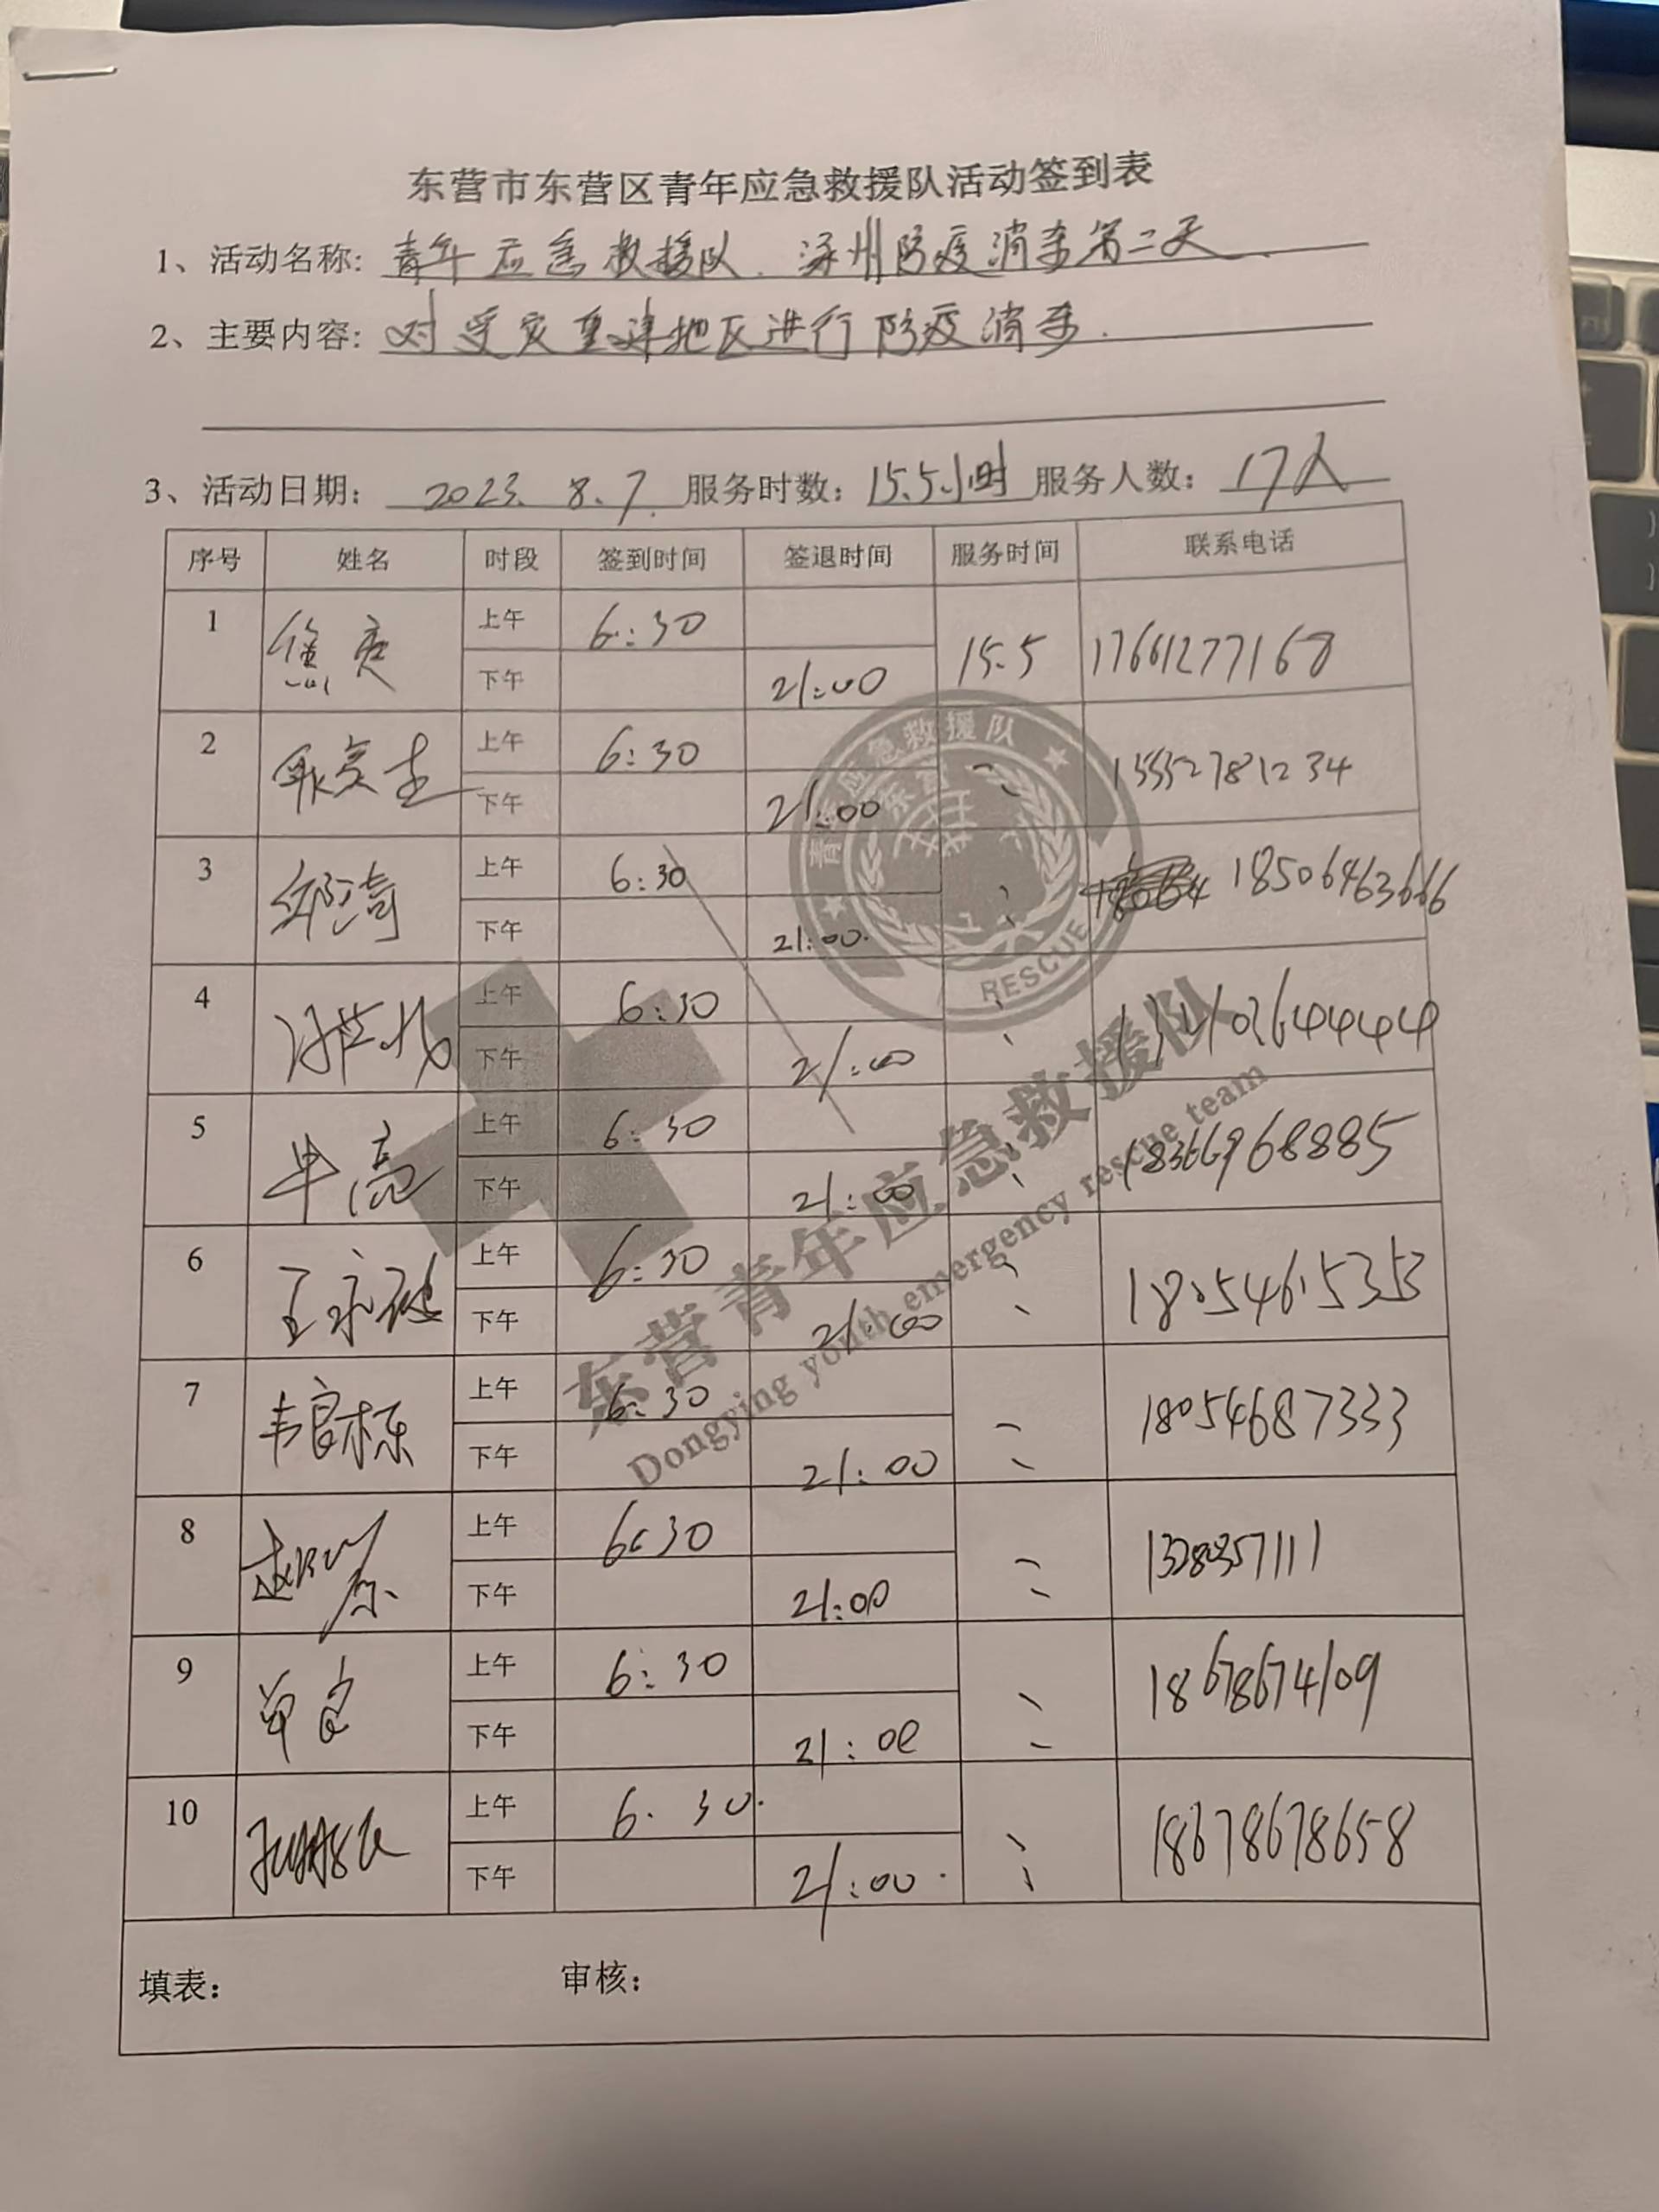 东营市东营区青年应急救援队活动签到表
1、活动名称: 青年应急救援队. 涿州防疫消杀第二天.
2、主要内容: 对受灾重建地区进行防疫消杀.
3、活动日期: 2023. 8. 7. 服务时数: 15.5小时 服务人数: 17人
序号 姓名 时段 签到时间 签退时间 服务时间 联系电话
1 焦亮 上午 6:30 15.5 17661277168
下午 21:00
2 上午 6:30 15552781234
下午 21:00
3 邱漪 上午 6:30 18506463666
下午 21:00
4 上午 6:30
下午 21:00
5 牛亮 上午 6:30 18366968885
下午 21:00
6 上午 6:30 18054615353
下午 21:00
7 韦良栋 上午 6:30 18054687333
下午 21:00
8 上午 6:30
下午 21:00
9 上午 6:30 18678674109
下午 21:00
10 上午 6.30. 18678678658
下午 21:00.
填表: 审核:
青年应急救援队
东营
RESCUE
东营青年应急救援队
Dongying youth emergency rescue team